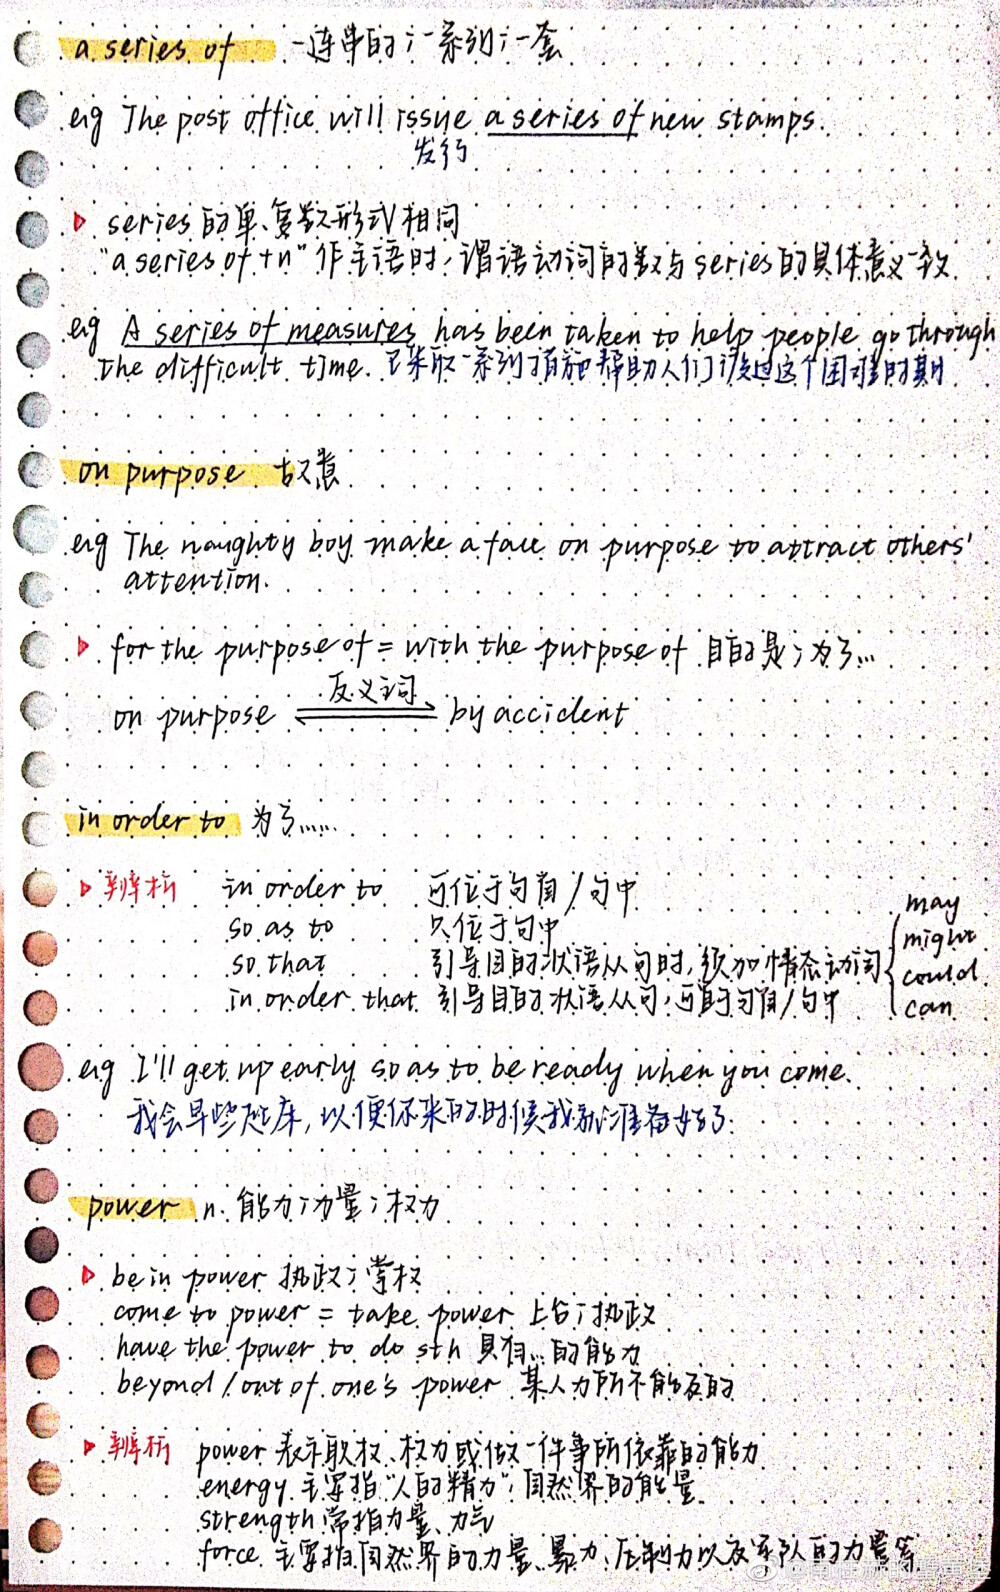 a series of 一连串的；一系列；一套
eg The post office will issue a series of new stamps.
发行
series的单、复数形式相同
"a series of +n"作主语时，谓语动词的数与series的具体意义一致.
eg A series of measures has been taken to help people go through
the difficult time. 已采取一系列措施帮助人们渡过这个困难时期
on purpose 故意
eg The naughty boy make a face on purpose to attract others'
attention.
for the purpose of = with the purpose of 目的是；为了...
反义词
on purpose by accident
in order to 为了......
辨析 in order to 可位于句首/句中
so as to 只位于句中
so that 引导目的状语从句时,须加情态动词 { may might could can
in order that 引导目的状语从句,可置于句首/句中
eg I'll get up early so as to be ready when you come.
我会早些起床, 以便你来的时候我就准备好了.
power n. 能力；力量；权力
be in power 执政；掌权
come to power = take power 上台；执政
have the power to do sth 具有...的能力
beyond / out of one's power 某人力所不能及的
辨析 power 表示职权、权力或做一件事所依靠的能力
energy 主要指"人的精力"；自然界的能量
strength 常指力量、力气
force 主要指自然界的力量、暴力、压制力以及军队的力量等